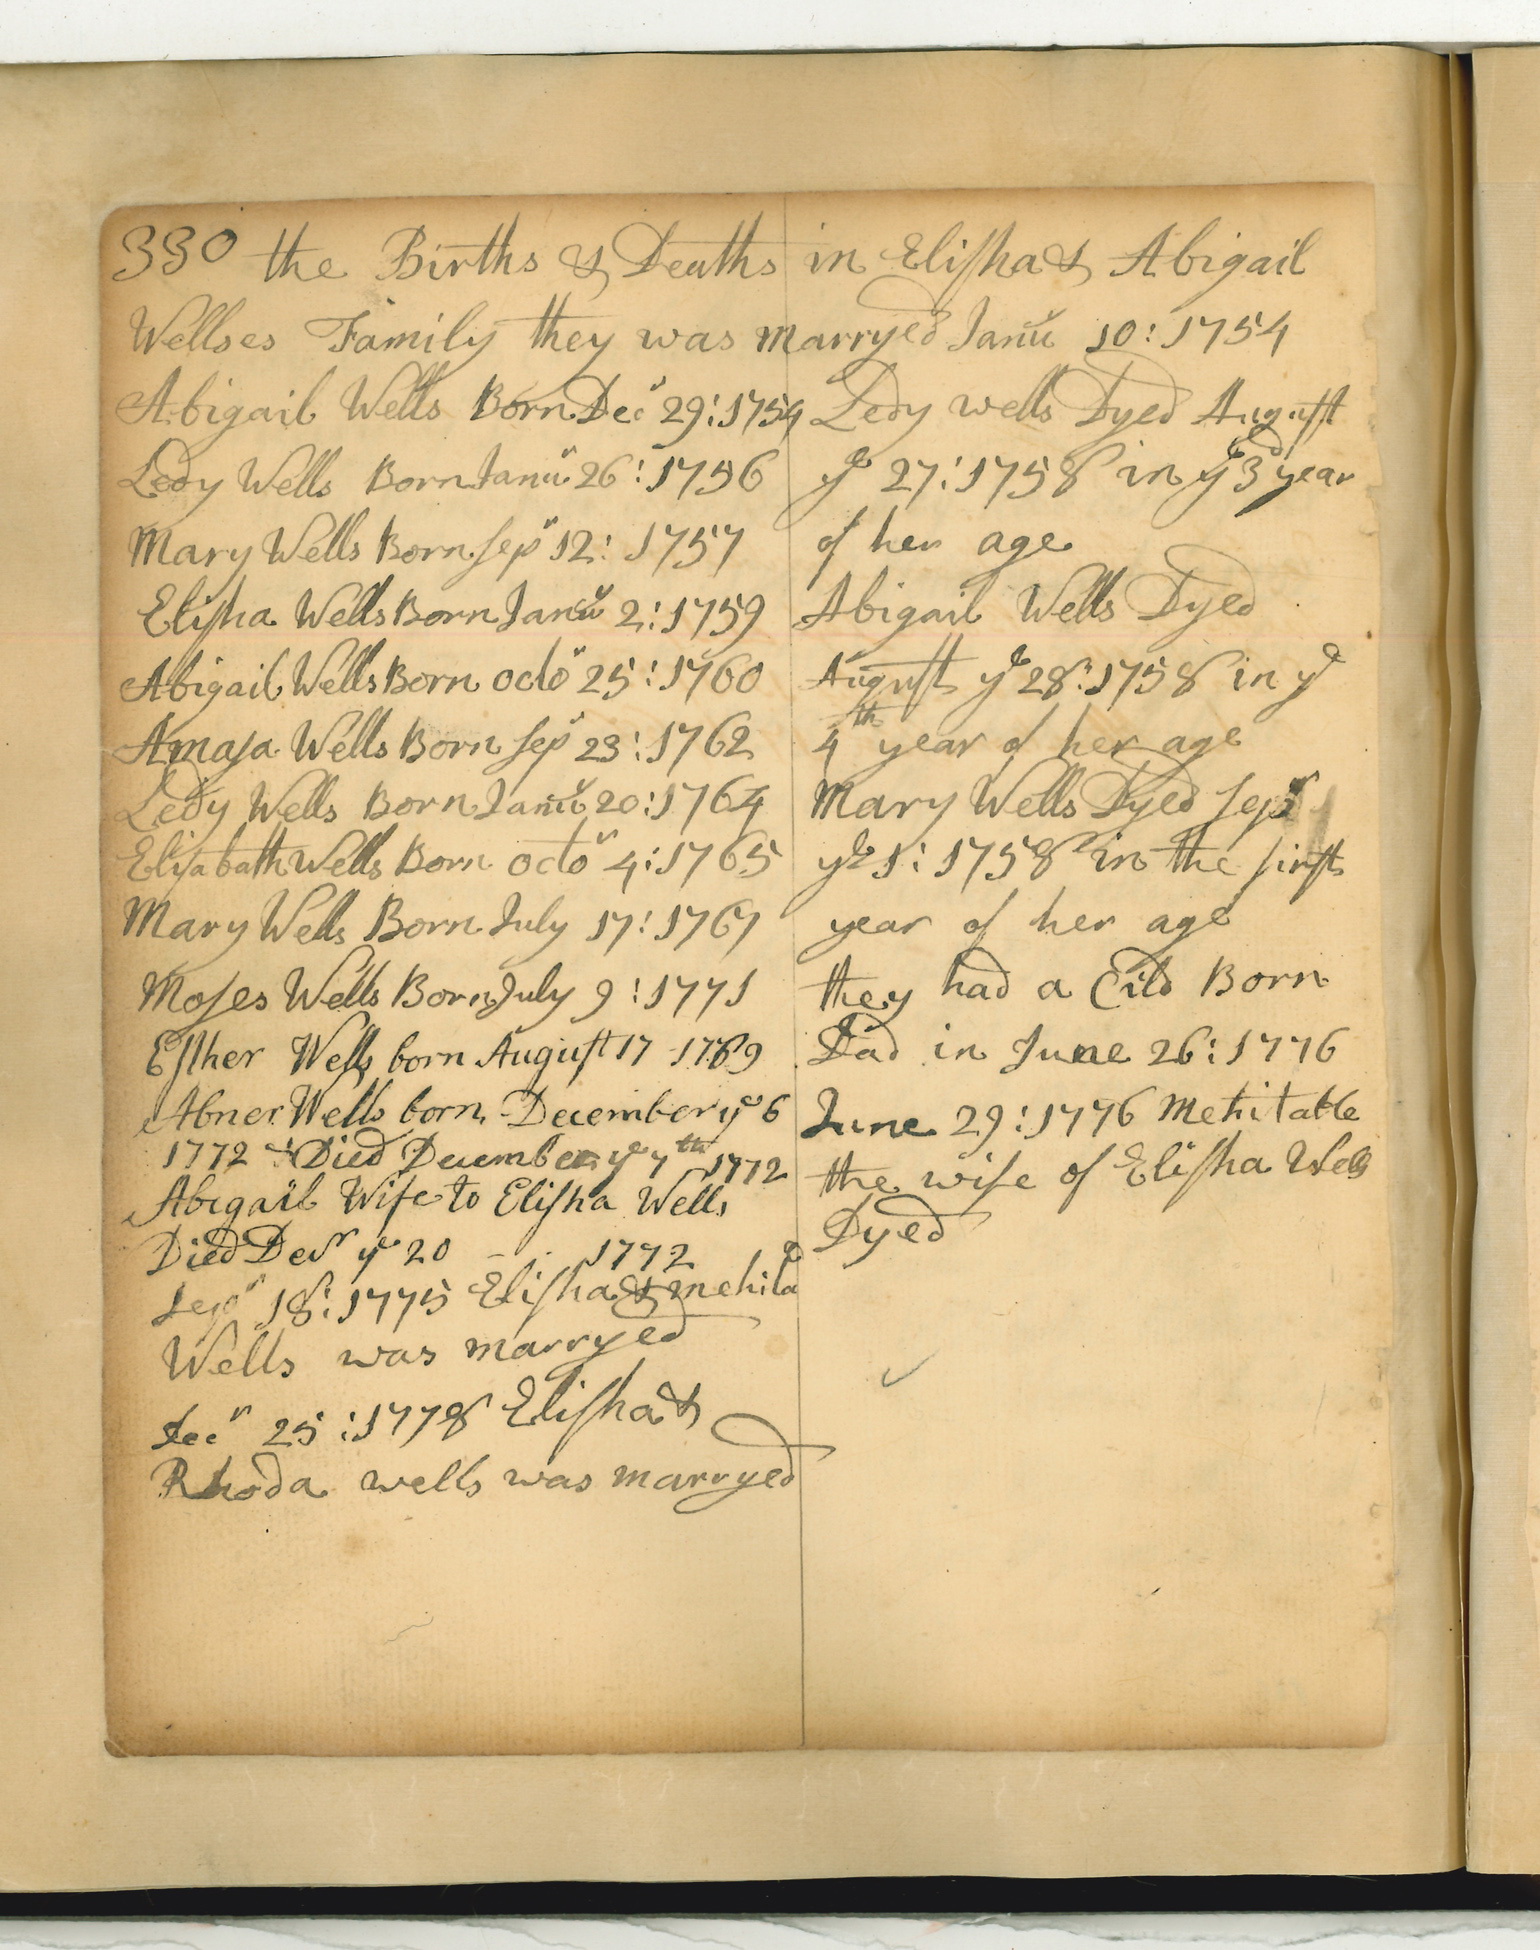 330 the Births & Deaths in Elisha & Abigail
Wellses Family they was marryed Janu 10: 1754
Abigail Wells Born Dec 29: 1754
Ledy Wells Born Janu 26: 1756
Mary Wells Born sep 12: 1757
Elisha Wells Born Janu 2: 1759
Abigail Wells Born octo 25: 1760
Amasa Wells Born sep 23: 1762
Ledy Wells Born Janu 20: 1764
Elisabath Wells Born octo 4: 1765
Mary Wells Born July 17: 1767
Moses Wells Born July 9: 1771
Esther Wells born August 17 1769
Abner Wells born December ye 6
1772 Died December ye 7th 1772
Abigail Wife to Elisha Wells
Died Decr ye 20 1772
Sepr 18: 1775 Elisha & mehita
Wells was marryed
Decr 25: 1778 Elisha &
Rhoda wells was marryed
Ledy wells Dyed August
ye 27: 1758 in ye 3d year
of her age
Abigail Wells Dyed
August ye 28: 1758 in ye
4th year of her age
Mary Wells Dyed sepr
ye 1: 1758 in the first
year of her age
they had a Cild Born
Dad in June 26: 1776
June 29: 1776 Mehitable
the wife of Elisha Wells
Dyed